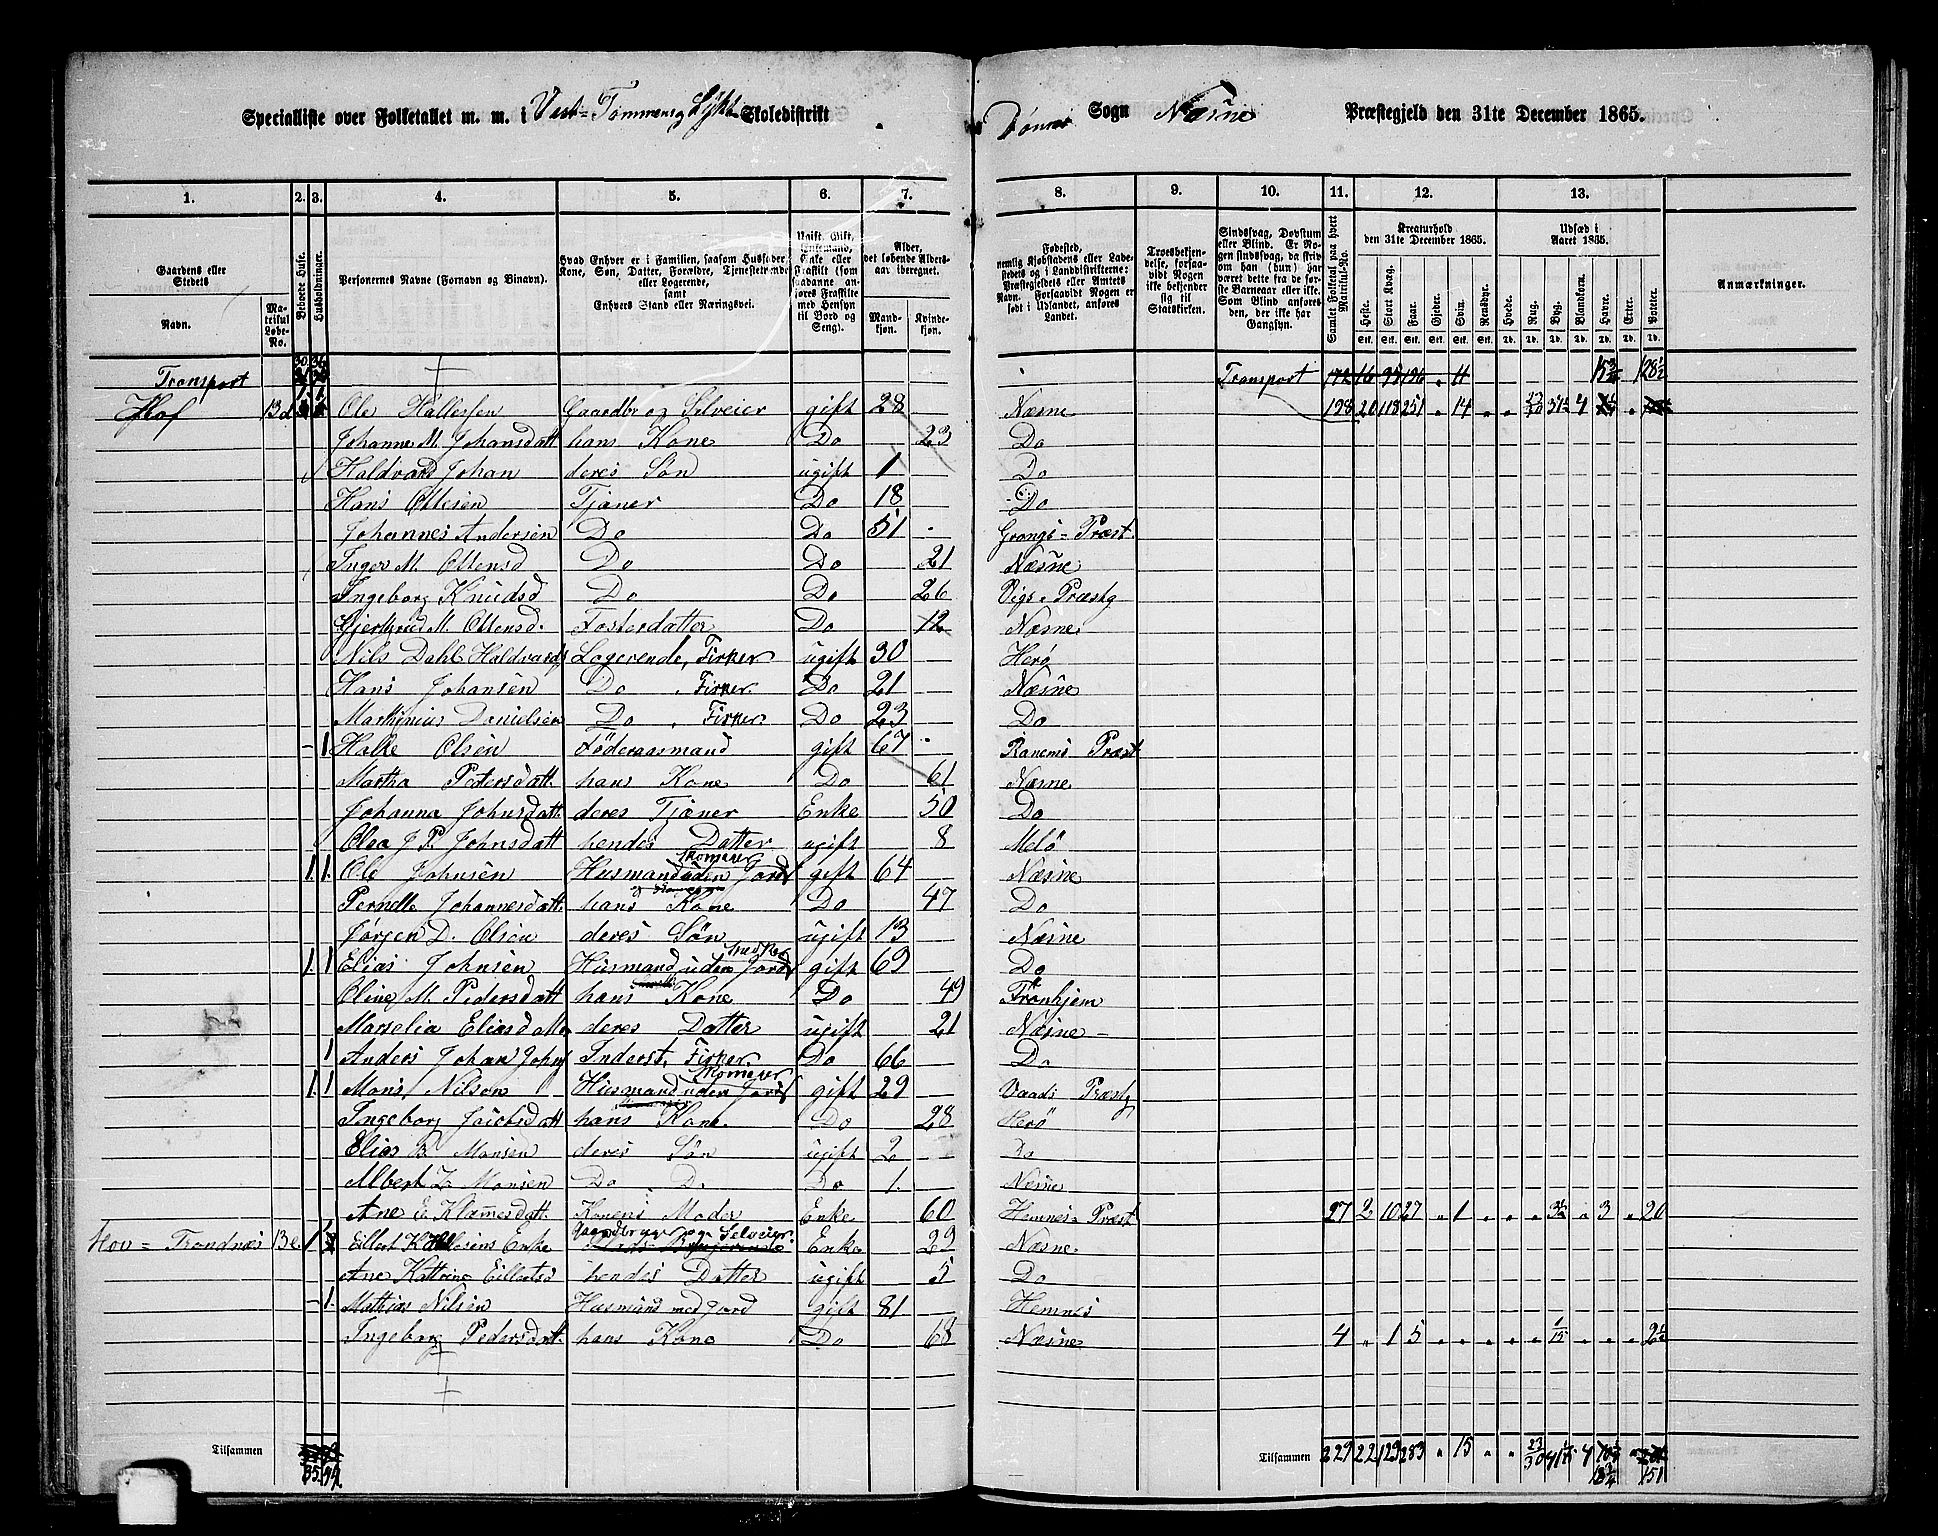 Specialliste over Folketallet m. m. i Vest= Tommen og Skoledistrikt Dønnes Sogn Næsne Præstegjeld den 31te December 1865.
1. 2. 3. 4. 5. 6. 7. 8. 9. 10. 11. 12. 13.
Gaardens eller Stedets Navn. Matrikul Løbe-No. Beboede Huse. Husholdninger. Personernes Navne (Fornavn og Binavn). Hvad Enhver er i Familien, saasom Husfader, Kone, Søn, Datter, Forældre, Tjenestetyende eller Logerende, samt Enhvers Stand eller Næringsvei. Alder, det løbende Alders-aar iberegnet. Mandkjøn. Kvindekjøn. Kreaturhold den 31te December 1865. Udsæd i Aaret 1865. Anmærkninger.
Heste. Stort Kvæg. Faar. Gjeder. Svin. Rensdyr. Hvede. Rug. Byg. Blandkorn. Havre. Erter. Poteter.
Transport Transport 172 16 98 136 " 11
Hof 13d Ole Hallesen Gaardbr og Selveier gift 28 Næsne 198 20 118 251 " 14 " " 4
Johanne M. Johansdatt hans Kone Do 23 Do
Haldvard Johan deres Søn ugift 1 Do
Hans Ottesen Tjæner Do 18 Do
Johannes Andersen Do Do 51 Grongs= Præst.
Inger M. Ottensd Do Do 21 Næsne
Ingeborg Knudsd Do Do 26 Vigs= Præstg
Gjertrud M. Ottensd. Fosterdatter Do 12 Næsne
Nils Dahl Haldvards Logerende, Fisker ugift 30 Herø
Hans Johansen Do, Fisker. Do 21 Næsne
Marthinius Danielsen Do, Fisker Do 23 Do
1 Halke Olsen Föderaasmand gift 67 Ranems Præst
Martha Pedersdatt. hans Kone Do 61 Næsne
Johanna Johnsdatt. deres Tjæner Enke 50 Do
Olea J. P. Johnsdatt hendes Datter ugift 8 Melö
1. 1. Ole Johnsen Husmand uden Jord gift 64 Næsne
Pernelle Johannesdatt. hans Kone Do 47 Do
Jørgen D. Olsen deres Søn ugift 13 Næsne
1. 1 Elias Johnsen Husmand uden Jord gift 69 Do
Oline M. Pedersdatt hans Kone Do 49 Tronhjem
Marselia Eliasd deres Datter ugift 21 Næsne
1 Anders Johan Johns Inderst, Fisker. Do 66 Do
1. 1 Mons Nilsen Husmand uden Jord gift 29 Præstg
Ingeborg Jacobsdatt hans Kone. Do 28 Herö
Elias B Monsen deres Søn ugift 2 Do
Albert Z Monsen Do Do Do 1. Næsne
Ane E Klæmesdatt. Konens Moder Enke 60 Hemnes= Præst 27 2 10 27 " 1 " " " 3 " 20
Hov= Trondnæs 13e 1 Eilert K Hallesens Enke Gaardbruger og Selveier. Enke 29 Næsne.
Ane Kattrine Eilertsd hendes Datter ugift 5 Do
1. Mathias Nilsen Husmand med Jord gift 81 Hemnes
Ingeborg Pedersdatt. hans Kone Do 68 Næsne 4 " 1 5 " " " " 1/15 " " " 2½
Tilsammen 35. 44. Tilsammen 229 22 129 283 " 15 " " 23/30 4 151